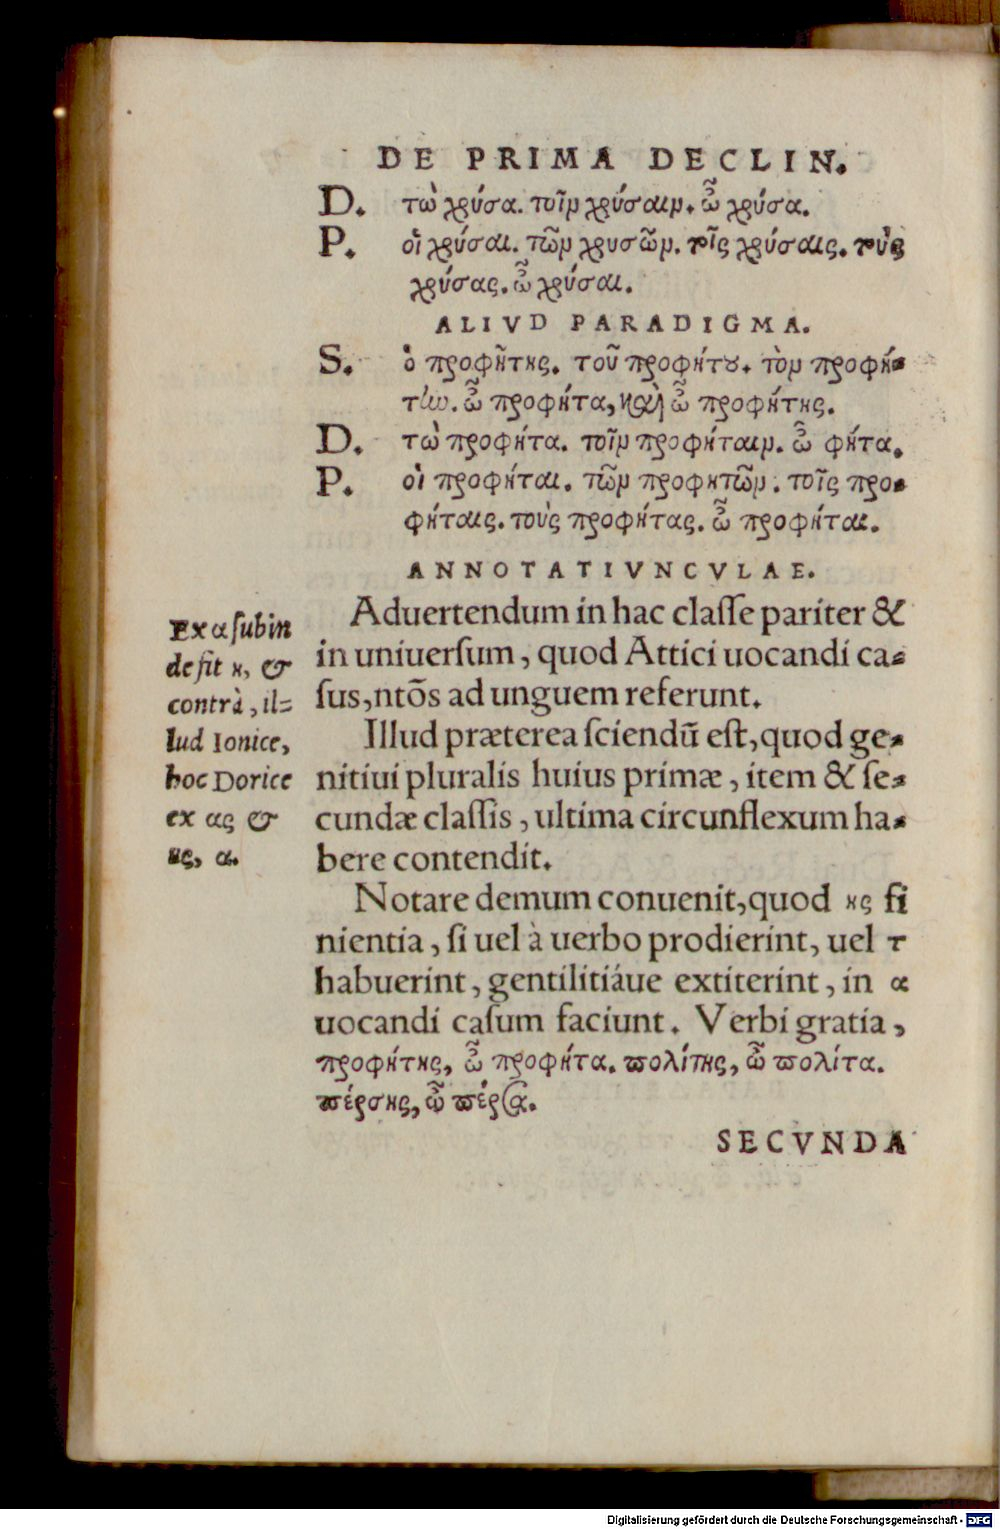 DE PRIMA DECLIN.
D. τὼ χρύσα. τοῖν χρύσαιν. ὦ χρύσα.
P. οἱ χρύσαι. τῶν χρυσῶν. τοῖς χρύσαις. τοὺς
χρύσας. ὦ χρύσαι.
ALIVD PARADIGMA.
S. ὁ προφῆτης. τοῦ προφήτου. τὸν προφή-
την. ὦ προφήτα, καὶ ὦ προφήτης.
D. τὼ προφήτα. τοῖν προφήταιν. ὦ φήτα.
P. οἱ προφήται. τῶν προφητῶν. τοῖς προ-
φήταις. τοὺς προφήτας. ὦ προφήται.
ANNOTATIVNCVLAE.
Aduertendum in hac claſſe pariter &
in uniuerſum, quod Attici uocandi ca-
ſus, ntõs ad unguem referunt.
Illud præterea ſciendũ eſt, quod ge-
nitiui pluralis huius primæ, item & ſe-
cundæ claſſis, ultima circunflexum ha-
bere contendit.
Notare demum conuenit, quod ης fi
nientia, ſi uel à uerbo prodierint, uel τ
habuerint, gentilitiáue extiterint, in α
uocandi caſum faciunt. Verbi gratia,
προφήτης, ὦ προφήτα. πολίτης, ὦ πολίτα.
πέρσης, ὦ πέρσα.
Ex α ſubin
de fit η, &
contrà, il=
lud Ionice,
hoc Dorice
ex ας &
ης, α.
SECVNDA
Digitalisierung gefördert durch die Deutsche Forschungsgemeinschaft - DFG